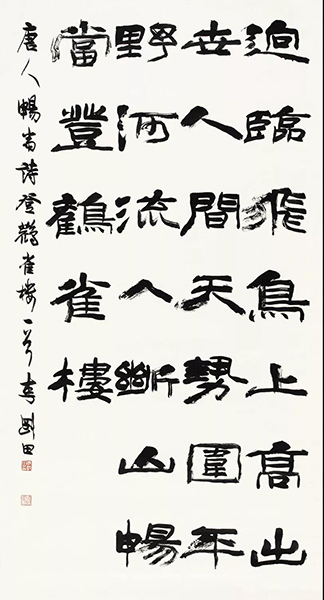 迥臨飛鳥上高出
世人間天勢圍平
野河流入斷山暢
當登鸛雀樓
唐人暢當詩登鸛雀樓一首李剛田